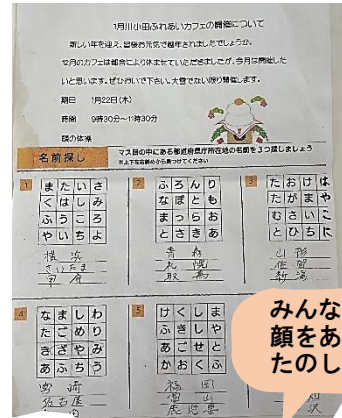 1月川小田ふれあいカフェの開催について
新しい年を迎え、皆様お元気で越年されましたでしょうか。
12月のカフェは都合により休ませていただきましたが、今月は開催した
いと思います。ぜひおいで下さい。大雪でない限り開催します。
期日 1月22日(木)
時間 9時30分～11時30分
頭の体操
名前探し
マス目の中にある都道府県庁所在地の名前を3つ探しましょう
※上下左右斜めから見つけてください
1
またいさ
くはしみ
ふうころ
やいちよ
横浜
さいたま
甲府
2
ふろんと
なぽっり
まとさき
青森
札幌
鳥取
3
たおけは
たがまや
むさいこ
とひちに
山形
4
なましわ
たごめり
きざやみ
あふちう
宮崎
名古屋
5
けくしま
ふきしや
あごせと
かおくふ
福岡
富山
鹿児島
みんな
顔をあ
たのし